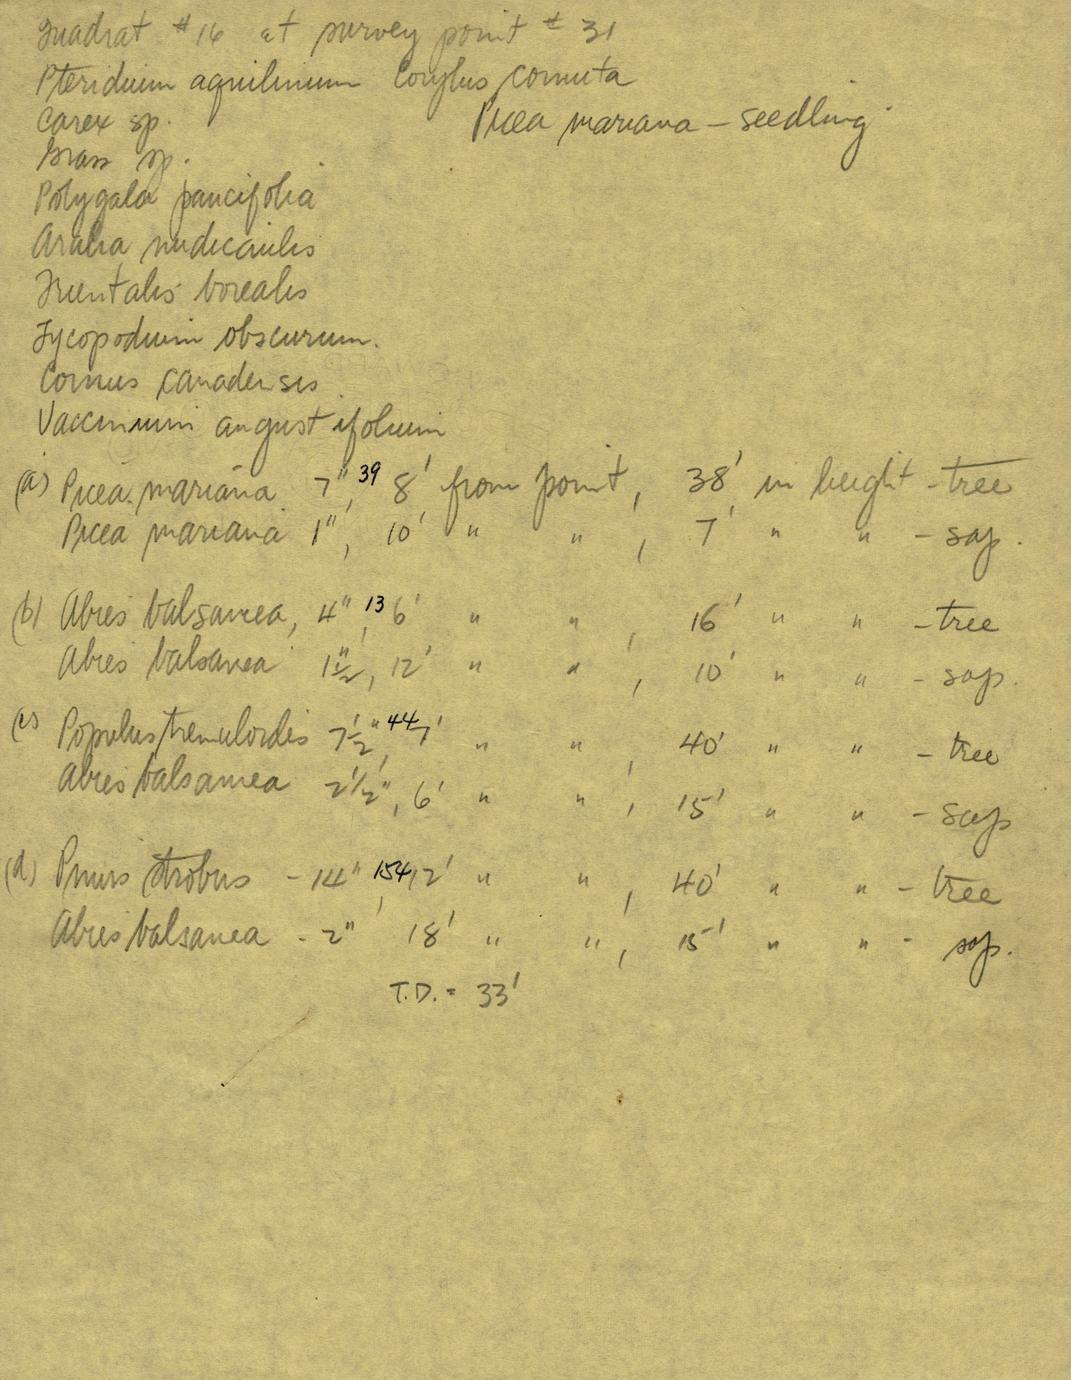 Quadrat #16 at survey point #31
Pteridium aquilinum Corylus cornuta
Carex sp. Picea mariana - seedling
Grass sp.
Polygala paucifolia
Aralia nudicaulis
Trientalis borealis
Lycopodium obscurum.
Cornus canadensis
Vaccinium angustifolium
(a) Picea mariana 7", 39 8' from point, 38' in height - tree
Picea mariana 1", 10' " " , 7' " " - sap.
(b) Abies balsamea, 4", 13 6' " " , 16' " " - tree
Abies balsamea 1 1/2", 12' " " , 10' " " - sap.
(c) Populus tremuloides 7 1/2", 44 7' " " , 40' " " - tree
Abies balsamea 2 1/2", 6' " " , 15' " " - sap
(d) Pinus strobus - 14", 154 12' " " , 40' " " - tree
Abies balsamea - 2" 18' " " , 15' " " - sap.
T.D. = 33'